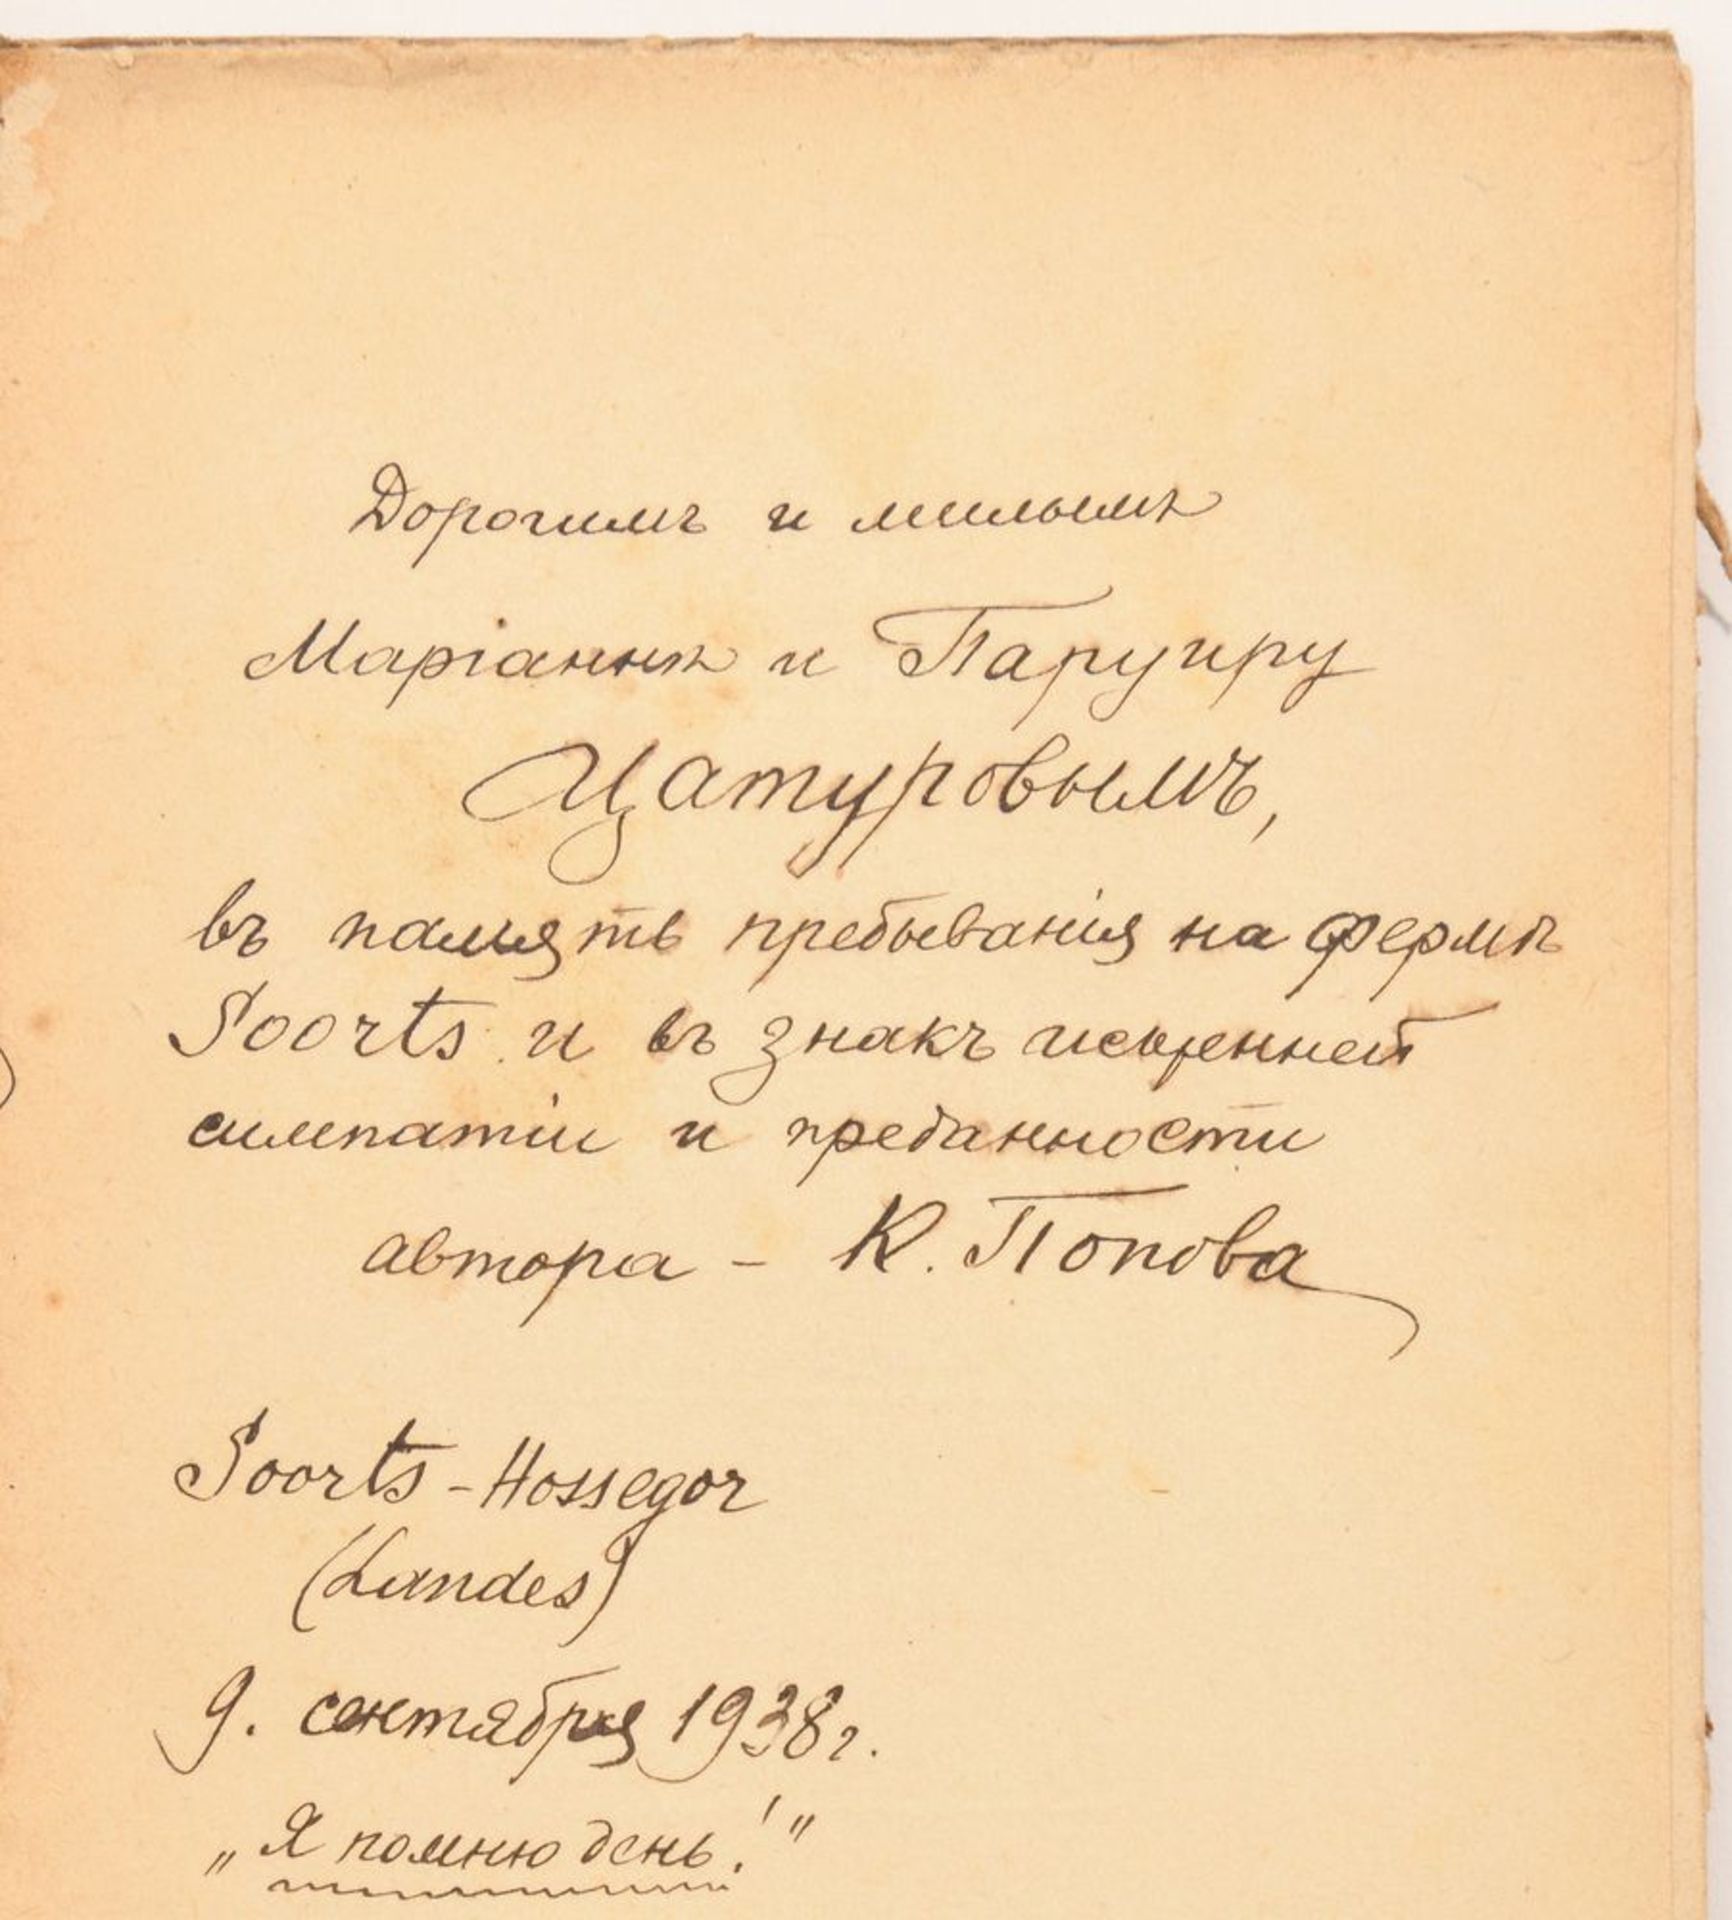 Дорогимъ и милымъ
Маріаннѣ и Паруиру
Цатуровымъ,
въ память пребыванія на фермѣ
Soorts и въ знакъ искренней
симпатіи и преданности
автора - К. Попова
Soorts - Hossegor
(Landes)
9. сентября 1938 г.
„Я помню день!"